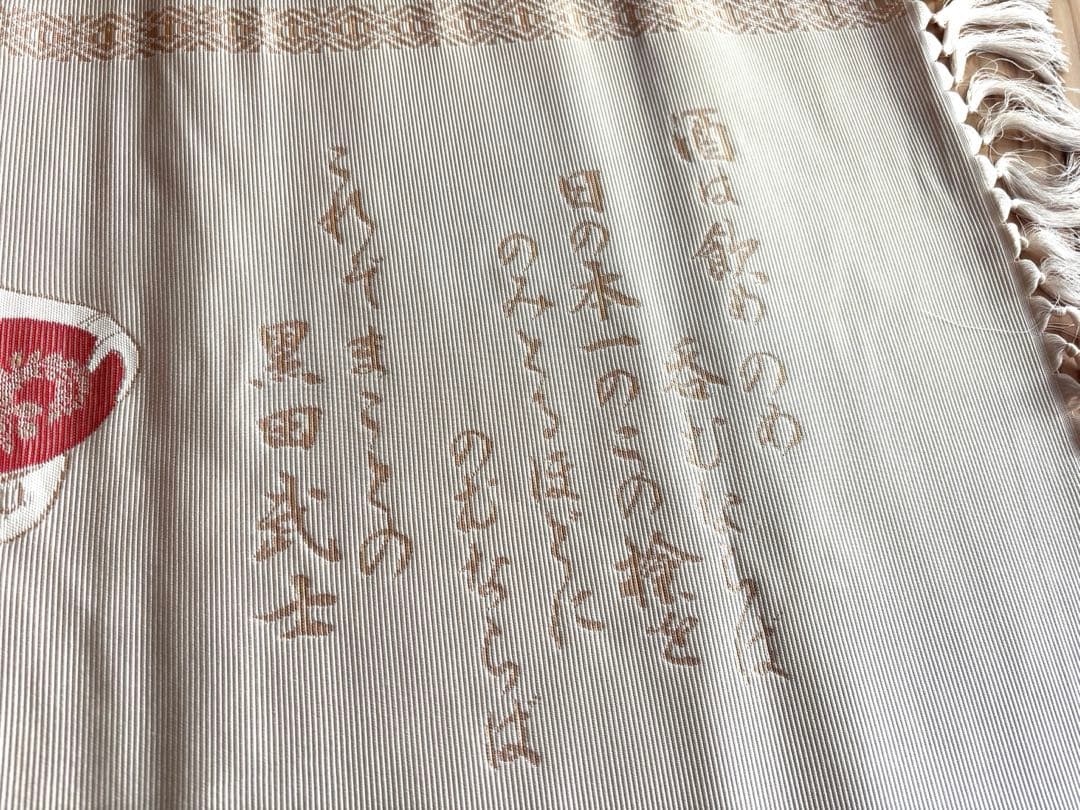 酒は飲めのめ
呑むならば
日の本一のこの槍を
のみとるほどに
のむならば
これぞまことの
黒田武士